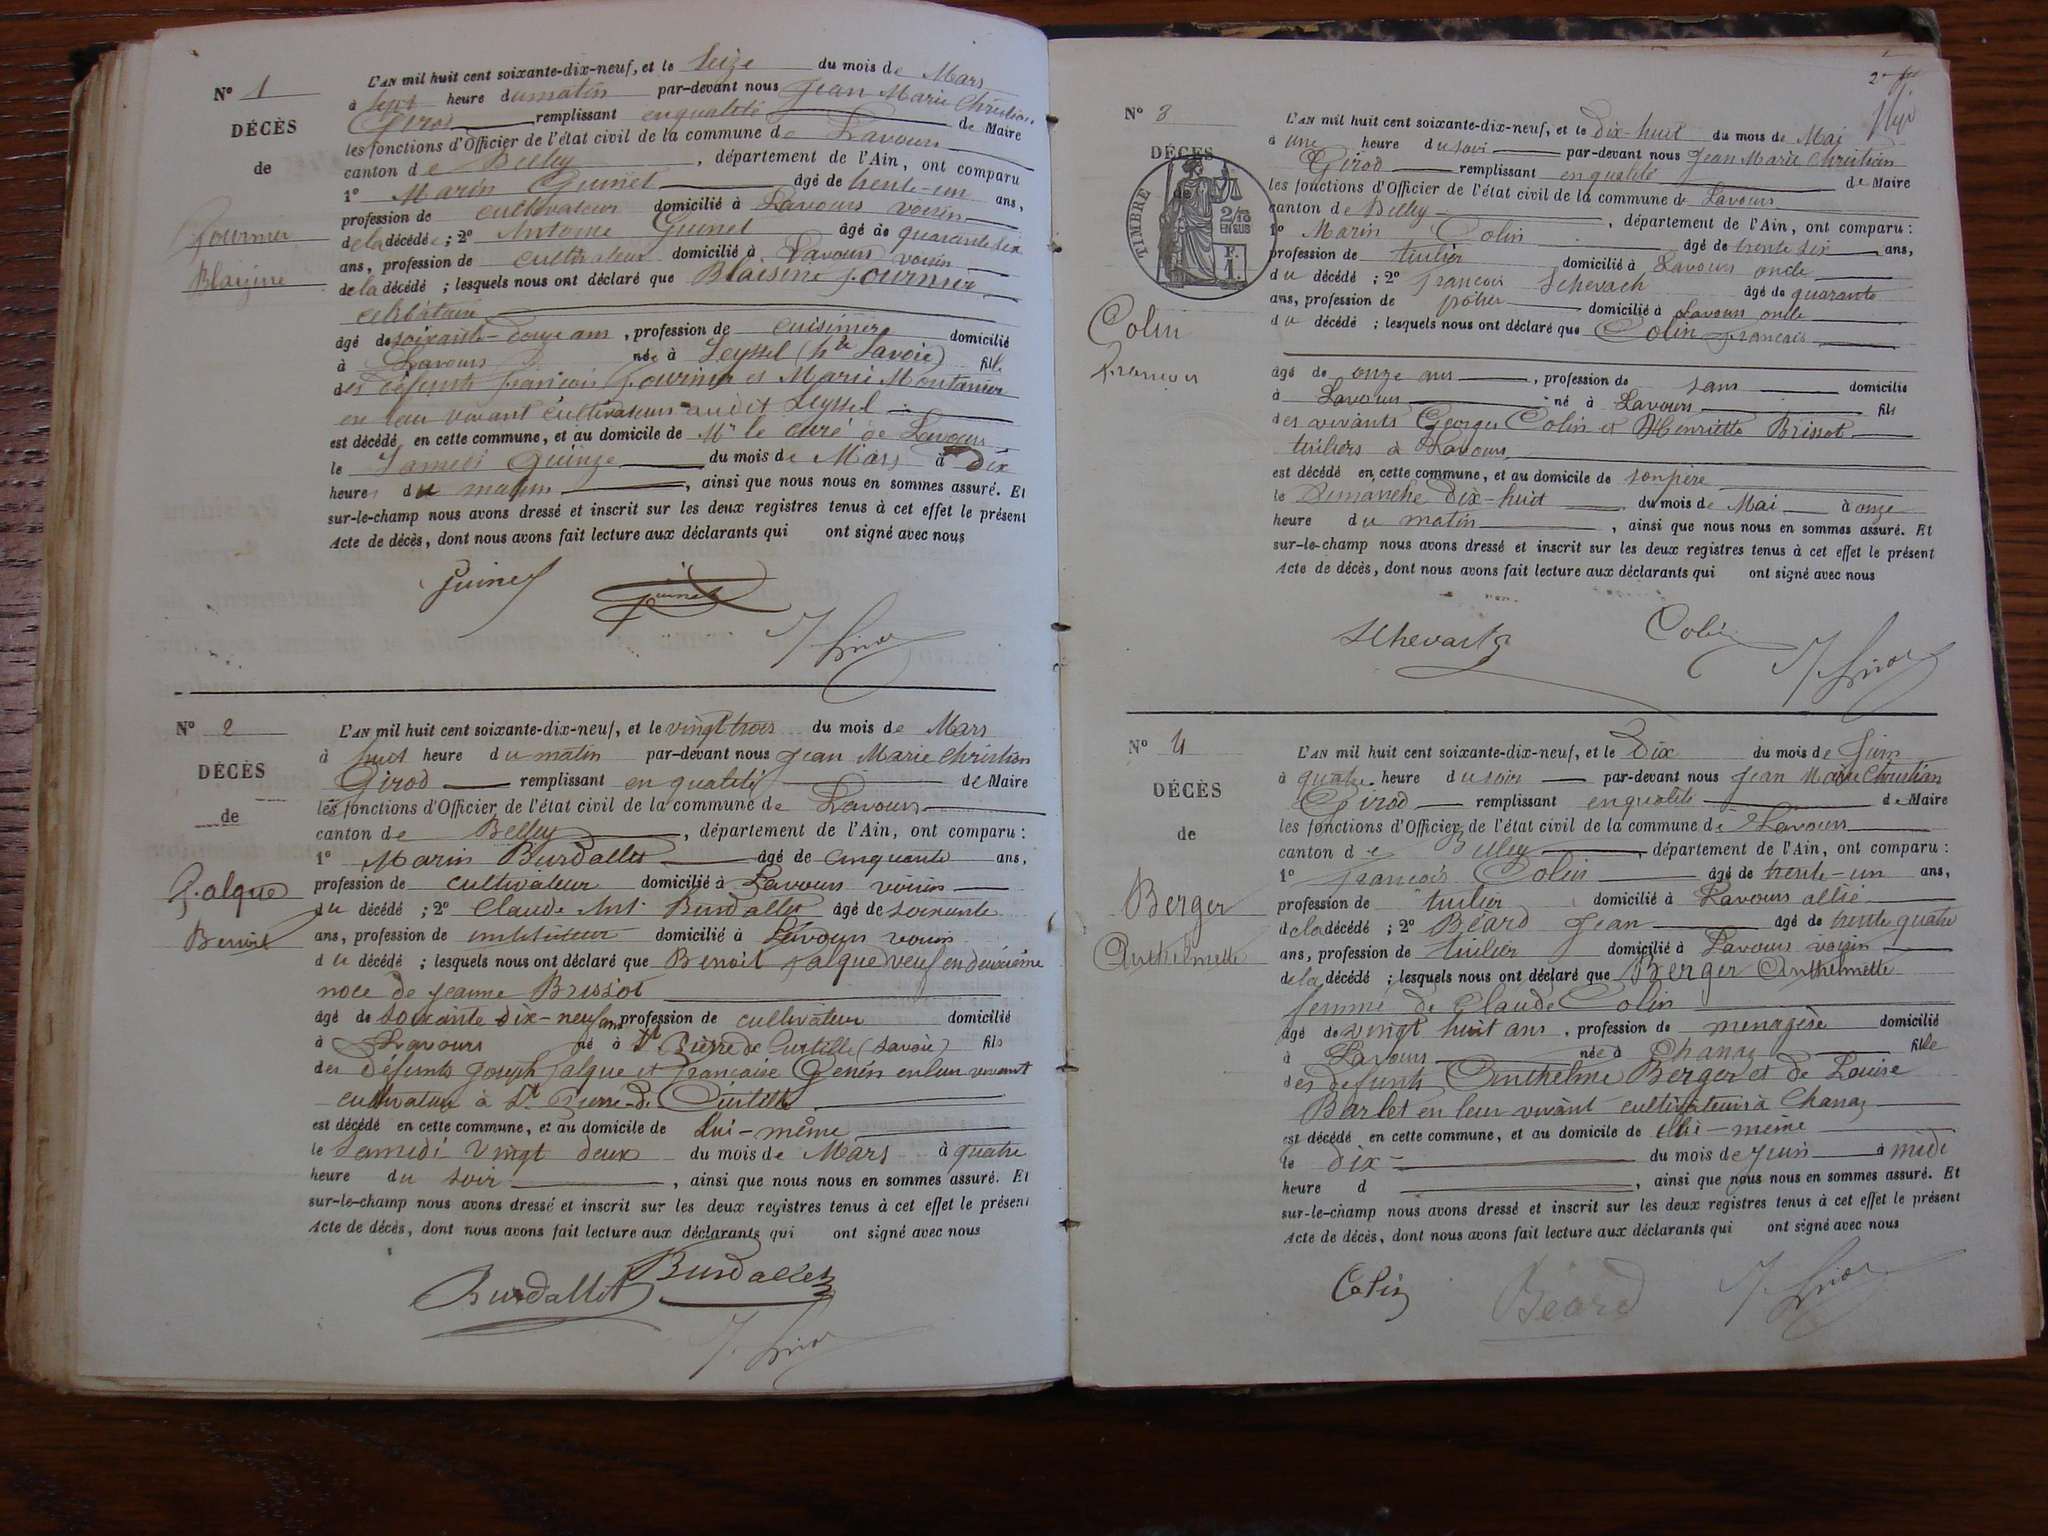 N° 1
DÉCÈS
de
Fournier
Blaizine
L'AN mil huit cent soixante-dix-neuf, et le Seize du mois de Mars
à sept heure du matin par-devant nous Jean Marie Christian
Girod remplissant en qualité de Maire
les fonctions d'Officier de l'état civil de la commune de Lavours
canton de Belley, département de l'Ain, ont comparu
1° Marin Guinet âgé de trente-un ans,
profession de cultivateur domicilié à Lavours voisin
de la décédé; 2° Antoine Guinet âgé de quarante six
ans, profession de cultivateur domicilié à Lavours voisin
de la décédé; lesquels nous ont déclaré que Blaisine Fournier
célibataire
âgé de soixante-douze ans, profession de cuisinière domicilié
à Lavours née à Seyssel (hte Savoie) fille
des défunts françois Fournier et Marie Montanier
en leur vivant cultivateurs audit Seyssel
est décédé en cette commune, et au domicile de Mr le curé de Lavours
le Samedi Quinze du mois de Mars à Dix
heures du matin, ainsi que nous nous en sommes assuré. Et
sur-le-champ nous avons dressé et inscrit sur les deux registres tenus à cet effet le présent
Acte de décès, dont nous avons fait lecture aux déclarants qui ont signé avec nous
Guinet guinet
J Girod
N° 2
DÉCÈS
de
Falque
Benoit
L'AN mil huit cent soixante-dix-neuf, et le vingt trois du mois de Mars
à huit heure du matin par-devant nous Jean Marie Christian
Girod remplissant en qualité de Maire
les fonctions d'Officier de l'état civil de la commune de Lavours
canton de Belley, département de l'Ain, ont comparu:
1° Marin Burdallet âgé de cinquante ans,
profession de cultivateur domicilié à Lavours voisin
du décédé; 2° Claude Ant. Burdallet âgé de soixante
ans, profession de instituteur domicilié à Lavours voisin
du décédé; lesquels nous ont déclaré que Benoit Falque veuf en deuxième
noce de Jeanne Brissot
âgé de soixante dix-neuf ans profession de cultivateur domicilié
à Lavours né à St Pierre de Curtille (Savoie) fils
des défunts Joseph Falque et Françoise Genin en leur vivant
cultivateur à St Pierre-de Curtille
est décédé en cette commune, et au domicile de lui-même
le Samedi Vingt deux du mois de Mars à quatre
heure du soir, ainsi que nous nous en sommes assuré. Et
sur-le-champ nous avons dressé et inscrit sur les deux registres tenus à cet effet le présent
Acte de décès, dont nous avons fait lecture aux déclarants qui ont signé avec nous
Burdallet Burdallet
J. Girod
2
N° 3
DÉCÈS
de
TIMBRE
2/10
EN SUS
F.
1.
Colin
Francois
L'AN mil huit cent soixante-dix-neuf, et le Dix-huit du mois de Mai
à une heure du soir par-devant nous Jean Marie Christian
Girod remplissant en qualité de Maire
les fonctions d'Officier de l'état civil de la commune de Lavours
canton de Belley, département de l'Ain, ont comparu:
1° Marin Colin âgé de trente six ans,
profession de tuilier domicilié à Lavours oncle
du décédé; 2° françois Schevach âgé de quarante
ans, profession de potier domicilié à Lavours oncle
du décédé; lesquels nous ont déclaré que Colin françois
âgé de onze ans, profession de sans domicilié
à Lavours né à Lavours fils
des vivants Georges Colin et Henriette Brissot
tuiliers à Lavours
est décédé en cette commune, et au domicile de son père
le Dimanche Dix-huit du mois de Mai à onze
heure du matin, ainsi que nous nous en sommes assuré. Et
sur-le-champ nous avons dressé et inscrit sur les deux registres tenus à cet effet le présent
Acte de décès, dont nous avons fait lecture aux déclarants qui ont signé avec nous
Schevartz Colin J Girod
N° 4
DÉCÈS
de
Berger
Anthelmette
L'AN mil huit cent soixante-dix-neuf, et le Dix du mois de Juin
à quatre heure du soir par-devant nous Jean Marie Christian
Girod remplissant en qualité de Maire
les fonctions d'Officier de l'état civil de la commune de Lavours
canton de Belley, département de l'Ain, ont comparu:
1° françois Colin âgé de trente-un ans,
profession de tuilier domicilié à Lavours allié
de la décédé; 2° Béard Jean âgé de trente quatre
ans, profession de tuilier domicilié à Lavours voisin
de la décédé; lesquels nous ont déclaré que Berger Anthelmette
femme de Claude Colin
âgé de vingt huit ans, profession de ménagère domicilié
à Lavours née à Chanaz fille
des defunts Anthelme Berger et de Louise
Barlet en leur vivant cultivateurs à Chanaz
est décédé en cette commune, et au domicile de elle-même
le dix du mois de Juin à midi
heure d, ainsi que nous nous en sommes assuré. Et
sur-le-champ nous avons dressé et inscrit sur les deux registres tenus à cet effet le présent
Acte de décès, dont nous avons fait lecture aux déclarants qui ont signé avec nous
Colin Béard J Girod